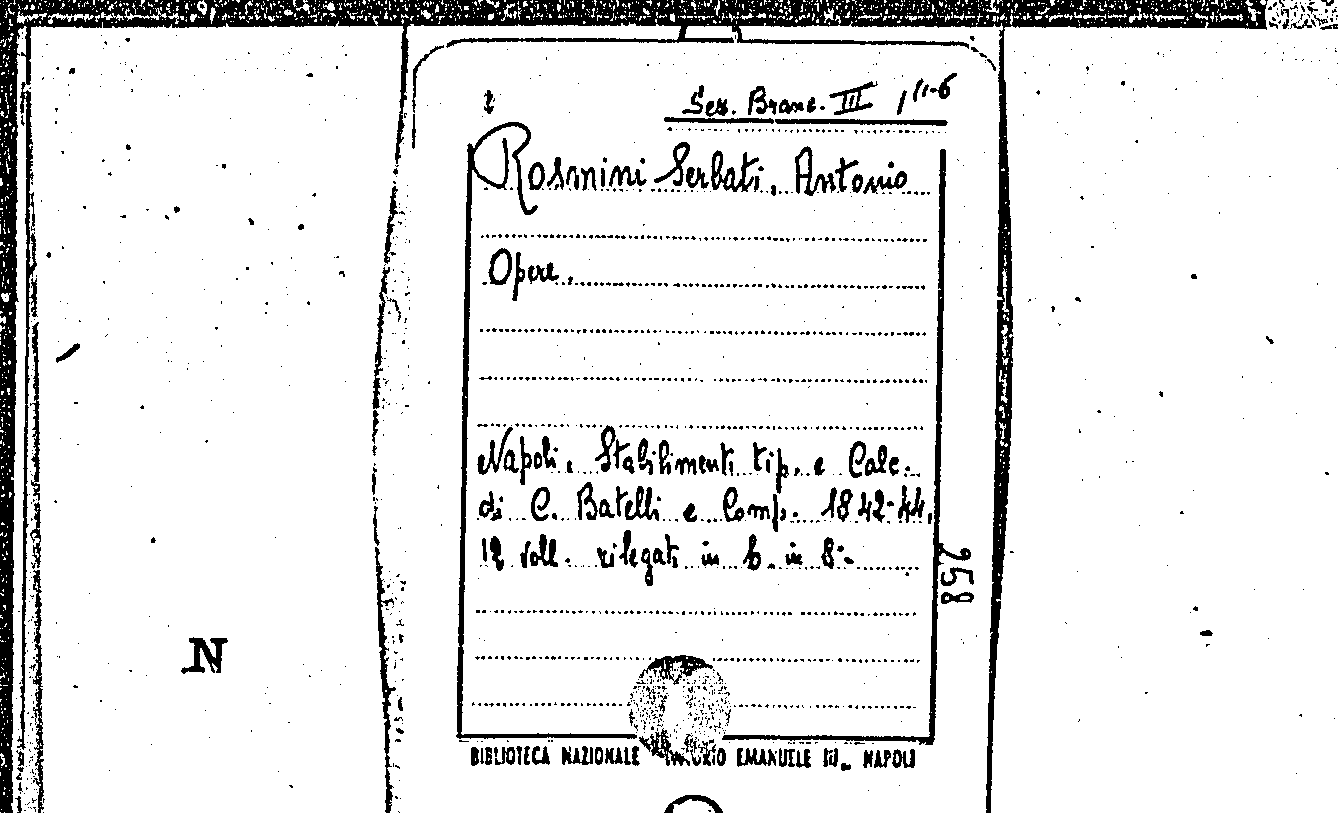 Sez. Branc. III 1 11-6
Rosmini Serbati, Antonio
Opere.
Napoli. Stabilimenti tip. e Calc.
di C. Batelli e Comp. 1842-44.
12 voll. rilegati in 6. in 8°.
258
N
BIBLIOTECA NAZIONALE VITTORIO EMANUELE III_ NAPOLI